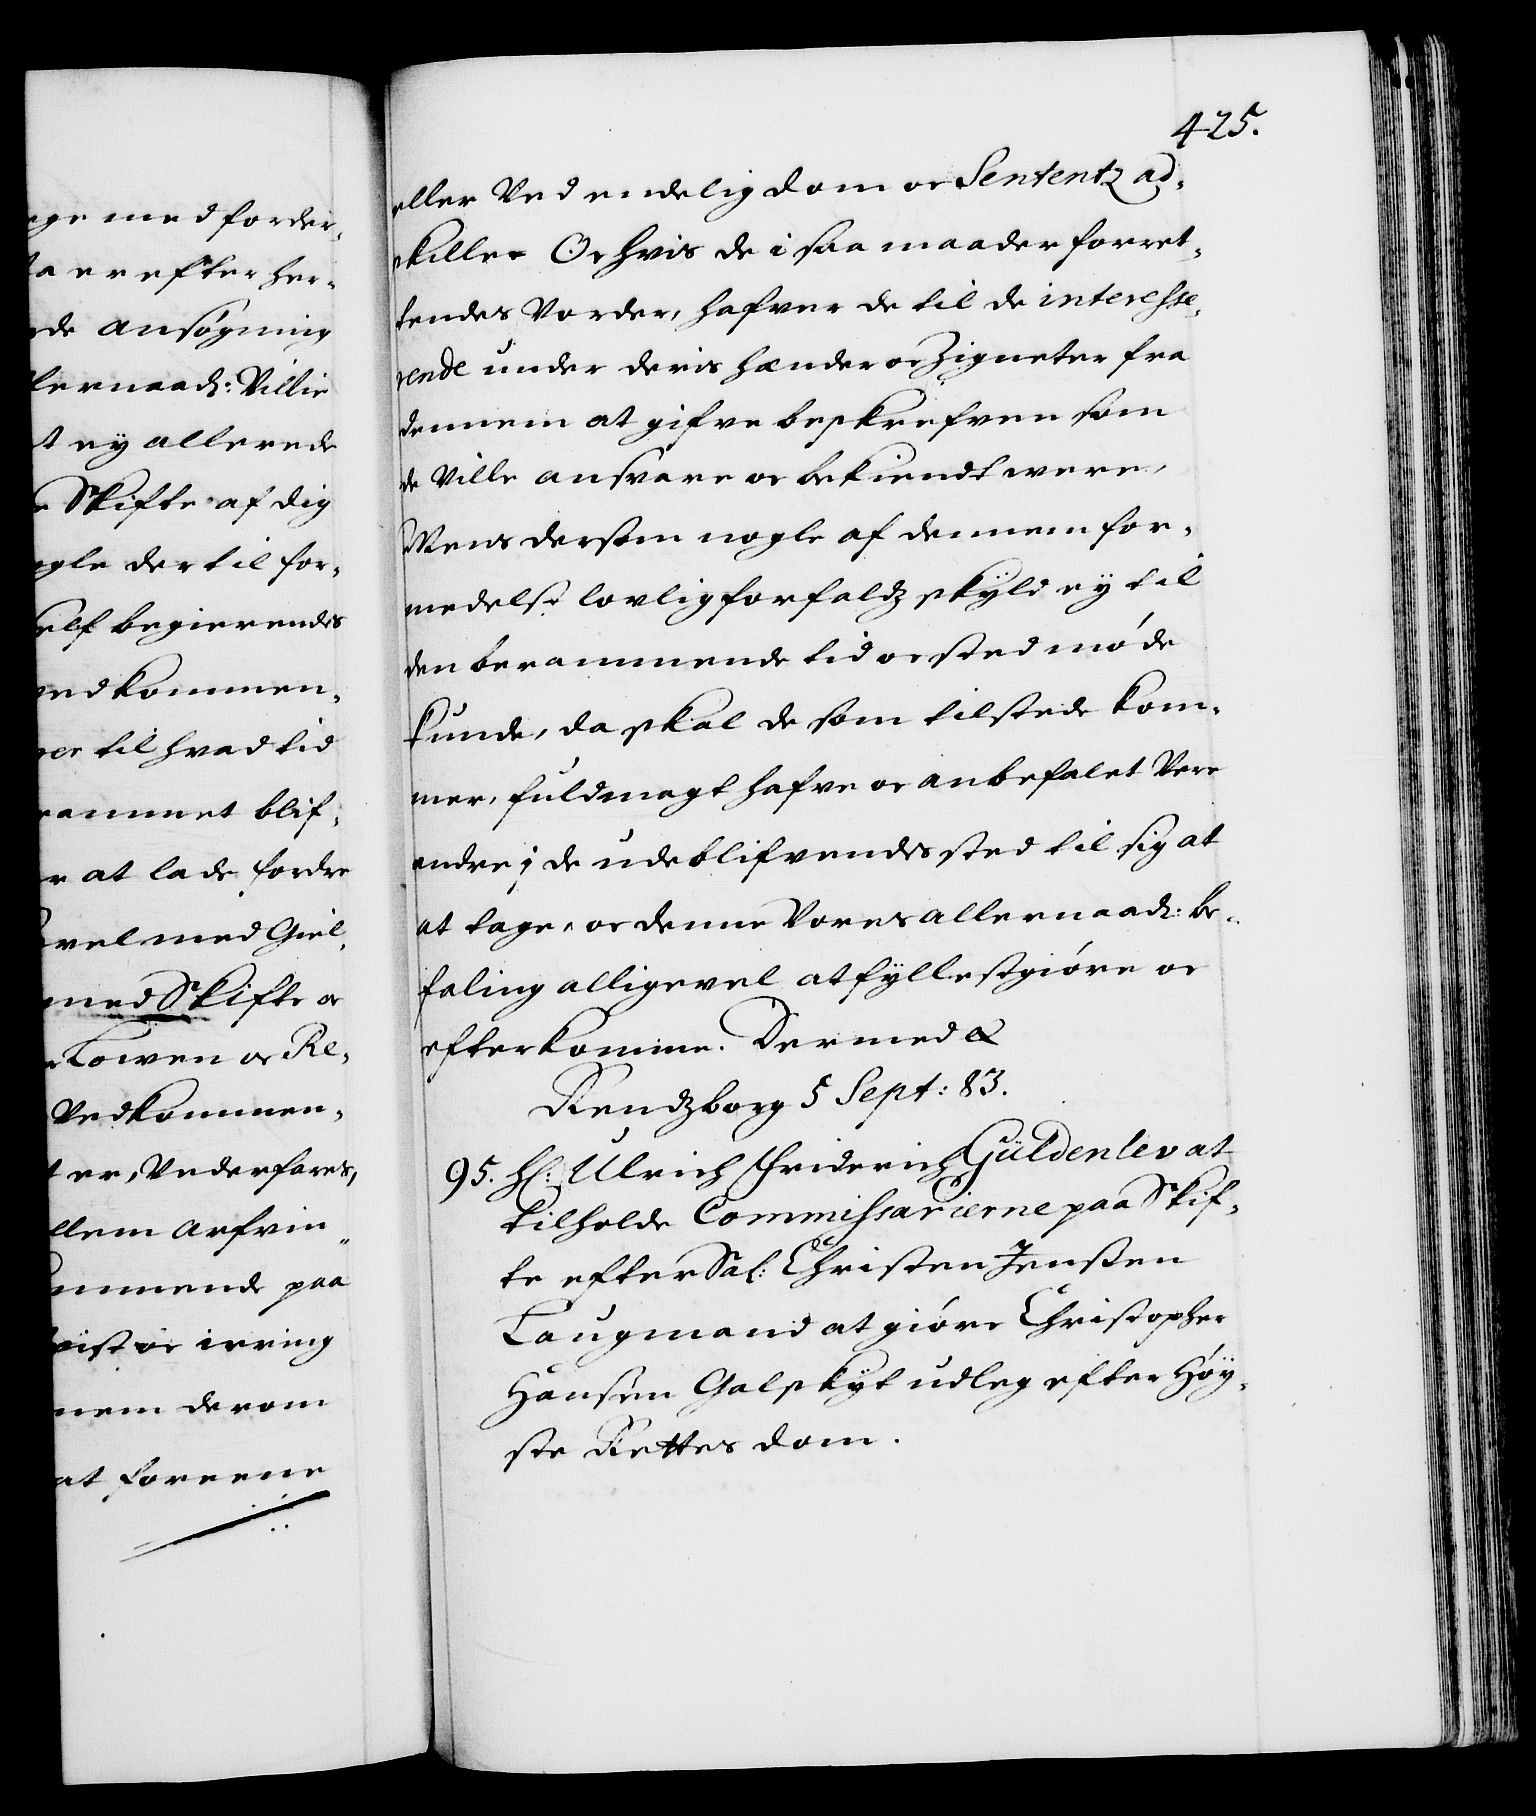 ege med forder,
ta er efter her,
rde ansøgning
llernaad: Villie
t ey allerede
e Skifte af dig
ogle der til for,
self begierendes
vedkommen,
ger til hvad tid
rammet blif,
r at lade fordre
vel med Giel,
med Skifte oc
Lowen oc Re,
Vedkommen,
ter, Vederfares,
llem arfvin,
ommende paa
tvist oc irring
nem derom
at foreene
425.
eller Ved endelig dom oc Sententz ad,
skiller Oc hvis de i saa maader forret,
tendes Vorder, hafver de til de interesse,
rende under deris hænder oc Zigneter fra
dennem at gifve beskrefven som
de Ville ansvare oc bekiendt were,
Mens dersom nogle af dennem for,
medelst lovlig forfaldz skyld ey til
den berammende tid oc sted møde
kunde, da skal de som tilstede kom,
mer, fuldmagt hafve oc anbefalet Vere
andre j de udeblifvendes sted til sig at
at tage, oc denne Vores allernaad: be,
faling alligevel at fyllestgiøre oc
efterkomme. Dermed &
Rendzborg 5 Sept: 83.
95. H: Ulrich Friderich Güldenlev at
tilholde Commissarierne paa Skif,
te efter Sal: Christen Jenssen
Laugmand at giøre Christopher
Hanssen Galskyt udleg efter Høy,
ste Rettes dom.